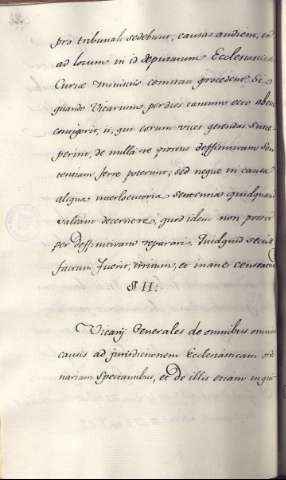 pro tribunali sedebunt, causas audient, et
ad locum in id deputatum Ecclesiastica
Curiæ ministris comitati procedent. Si
quando Vicarium per dies centum octo abesse
contigerit, is, qui eorum vices gerendas susce
perint, de nulla re prorsus deffinitivam Sen
tentiam ferre poterunt, sed neque in causa
aliqua interlocutoria sententia quidquam
valeant decernere, quod ideus non possit
per deffinitivam reparari. Quidquid secus
factum fuerit, irritum, et inane censeatur
§ II.
Vicarij Generales de omnibus omnino
causis ad jurisdictionem Ecclesiasticam ordi
nariam spectantibus, et de illis etiam in qui